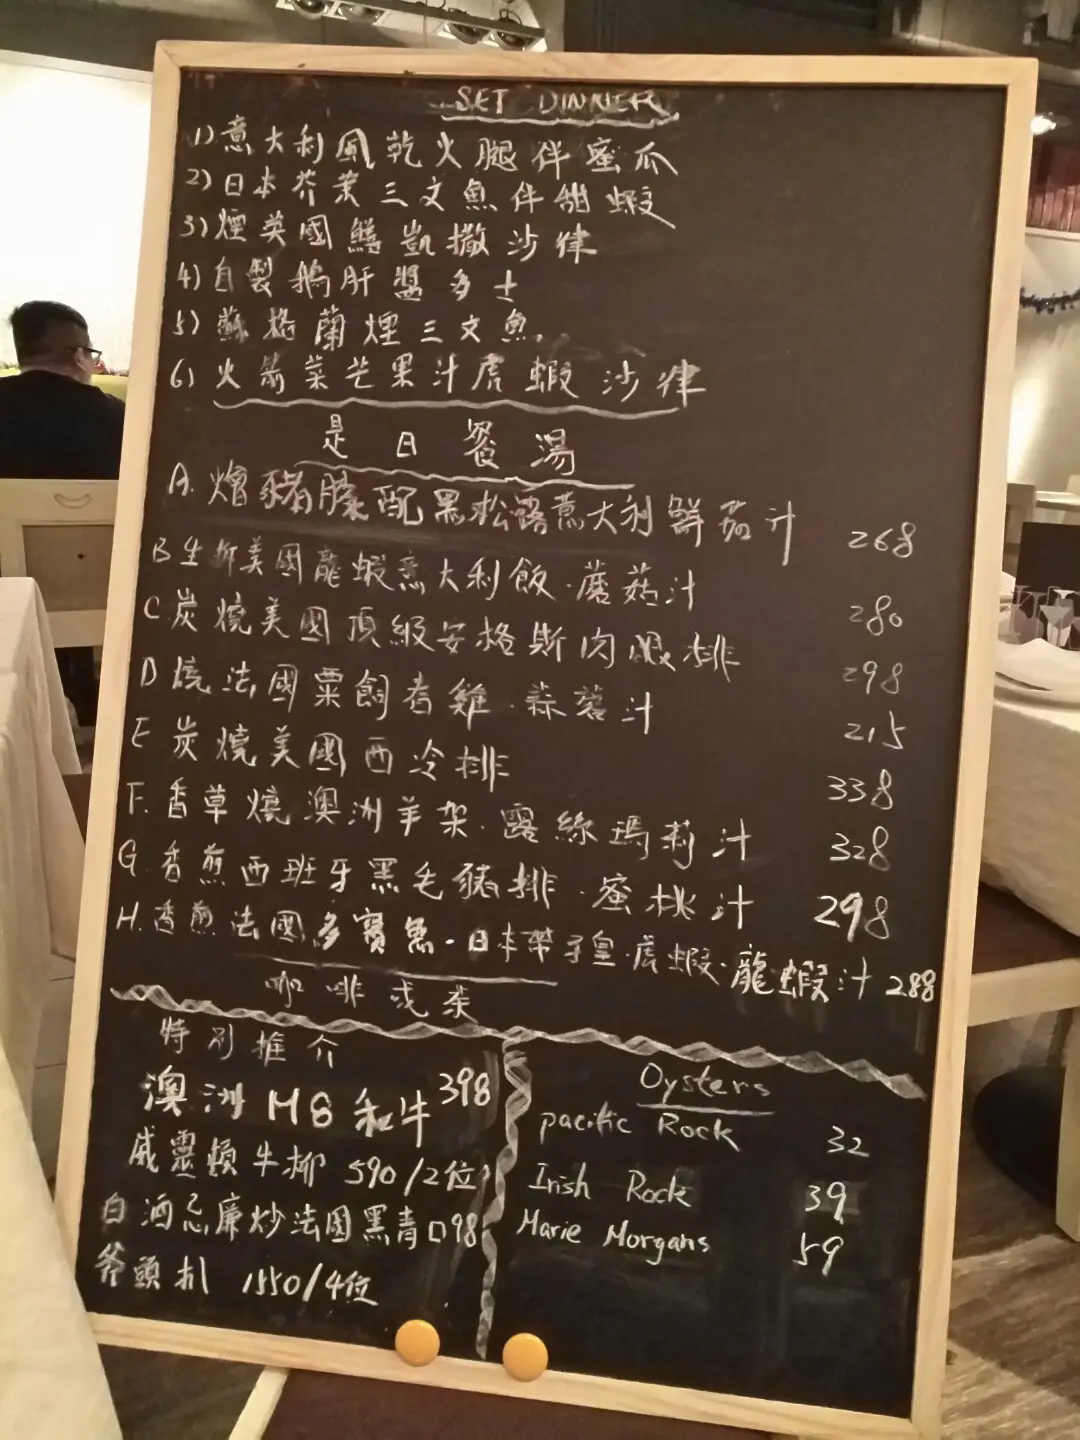 SET DINNER
1) 意大利風乾火腿伴蜜瓜
2) 日本芥茉三文魚伴甜蝦
3) 煙英國鱔凱撒沙律
4) 自製鵝肝醬多士
5) 蘇格蘭煙三文魚
6) 火箭菜芒果汁虎蝦沙律
是日餐湯
A. 燴豬膝配黑松露意大利鮮菇汁 268
B 生拆美國龍蝦意大利飯·蘑菇汁 280
C. 炭燒美國頂級安格斯肉眼排 298
D 燒法國粟飼春雞·蒜蓉汁 215
E 炭燒美國西冷排 338
F. 香草燒澳洲羊架·露絲瑪莉汁 328
G. 香煎西班牙黑毛豬排·蜜桃汁 298
H. 香煎法國多寶魚·日本帶子皇·虎蝦·龍蝦汁 288
咖啡或茶
特別推介
澳洲M8和牛 398
威靈頓牛柳 590/2位
白酒忌廉炒法國黑青口98
斧頭扒 1550/4位
Oysters
pacific Rock 32
Irish Rock 39
Marie Morgans 59